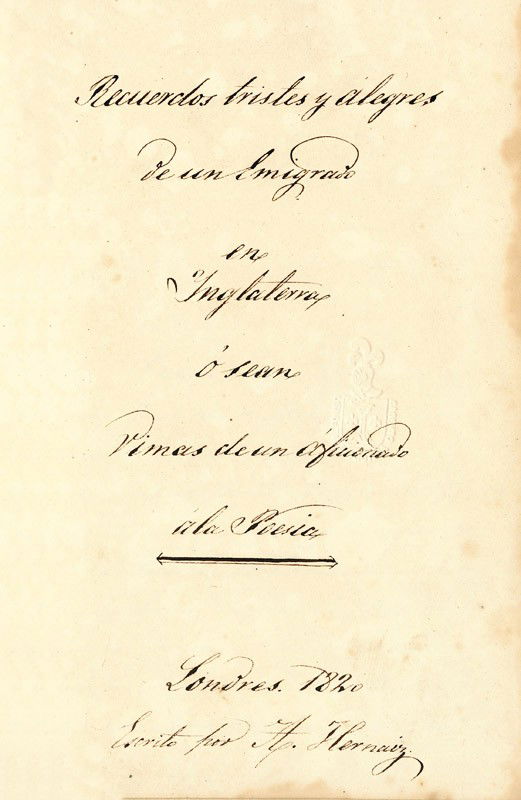 Recuerdos tristes y alegres
de un Emigrado
en
Inglaterra
ó sean
rimas de un áficionado
á la Poesia
Londres. 1820
Escrito por A. Hernaiz.